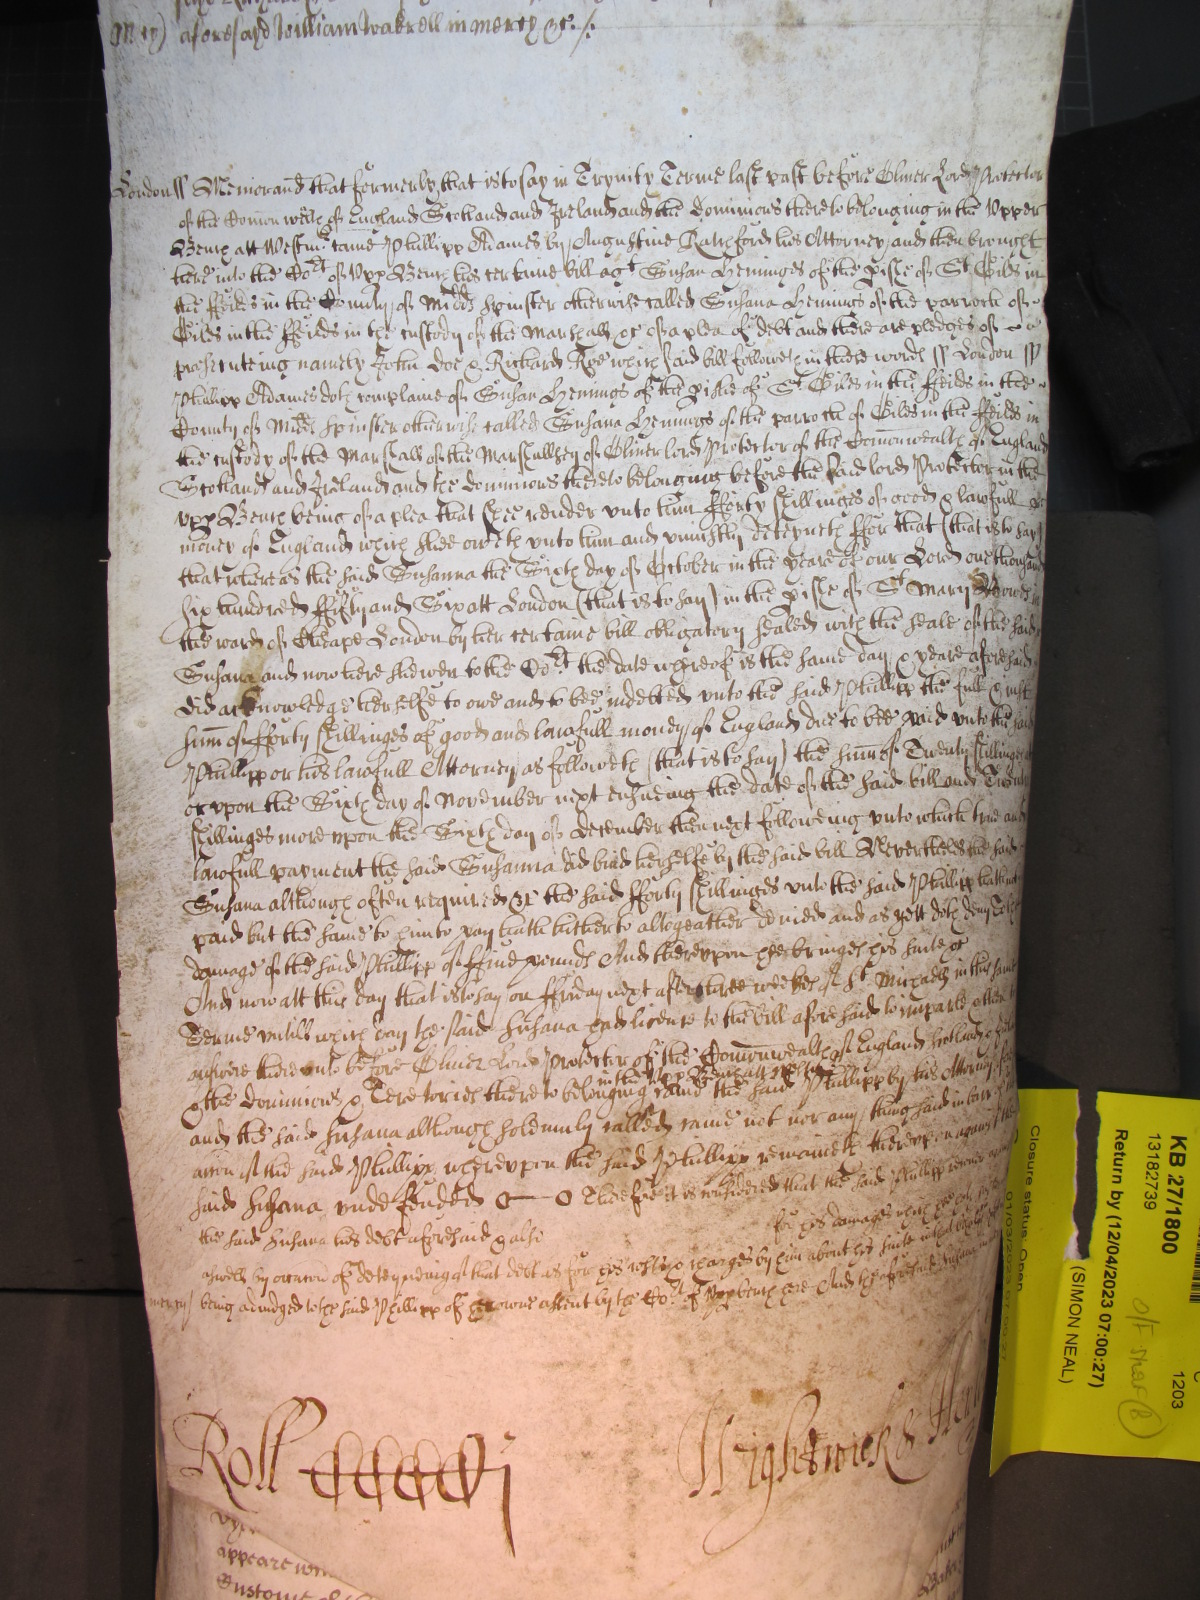 aforesayd William Wakrell in mercy &c ./.
London ss Memorand that formerly that is to say in Trynity Terme last past before Oliver Lord Protector
of the Comon wealth of England Scotland and Ireland and the Dominions thereto belonging in the Upper
Bench att Westmr came Phillipp Adames by Augustine Ratchford his Attorney and then brought
here into the Cort of Upp Bench his certaine bill agt Susan Heninges of the pishe of St Giles in
the ffeilds in the County of Midd spinster otherwise called Susana Henings of the parroch of
Giles in the ffeilds in the custody of the Marshall &c of a plea of debt and there are pledges of
prosecuteing namely John Doe & Richard Roe which said bill followeth in these words ss London ss
Phillipp Adames doth complaine of Susan Henings of the pishe of St Giles in the ffeilds in the
County of Midd spinster otherwise called Susana Henings of the parroch of Giles in the ffeilds in
the custody of the Marshall of the Marshallsey of Oliver lord Protector of the Comonwealth of England
Scotland and Ireland and the Dominions thereto belonging before the said lord Protector in the
Upp Bench being of a plea that shee render unto him fforty shillinges of good & lawfull
money of England which shee oweth unto him and uniustly deteyneth ffor that (that is to say)
that whereas the said Susanna the Sixth day of October in the yeare of our Lord one thousand
six hundred ffifty and Six att London (that is to say) in the pishe of St Mary Bowe in
the ward of Cheape London by her certaine bill obligatory sealed with the seale of the said
Susana and now here shewen to the Cort the date whereof is the same day & yeare aforesaid
did acknowledge herselfe to owe and to bee indebted unto the said Phillipp the full & iust
sum of fforty shillinges of good and lawfull money of England due to bee paid unto the said
Phillipp or his lawfull Attorney as followeth (that is to say) the sum of Twenty shillinges
or upon the Sixth day of November next ensueing the date of the said bill and Twenty
shillinges more upon the Sixth day of December then next followeing unto which true and
lawfull payment the said Susanna did bind herselfe by the said bill Neverthelesse the said
Susana although often required &c the said fforty shillinges unto the said Phillipp hath not
paid but the same to him to pay hath hitherto altogeather denied and as yett doth deny To the
damage of the said Phillipp of ffive pounds And thereupon hee bringes his suite &c
And now att this day that is to say on ffriday next after three weekes of St Michaell in this same
Terme untill which day the said Susana had license to the bill aforesaid to imparle & then to
answere thereunto before Oliver Lord Protector of the Comonwealth of England Scotland &
& the Dominions & Teretories thereto belonging in the Upp Bench att Westmr came the said Phillipp by his Attorney
and the said Susana although solemnly called came not nor any thing said in barr
accon of the said Phillipp whereupon the said Phillipp remaineth thereupon against the
said Susana undefended O— O Therefore it is considered that the said Phillipp recover
the said Susana his debt aforesaid & also for his damages which hee
aswell by occasion of deteyneing of that debt as for his costs & charges by him about his suite in that behalfe
mercy being adiudged to the said Phillipp of his owne assent by the Cort of Upp bench here And the aforesaid Susana in
Roll
Wightwick &
KB 27/1800
13182739
Return by (12/04/2023 07:00:27)
(SIMON NEAL)
Closure status: Open
1203
appeare